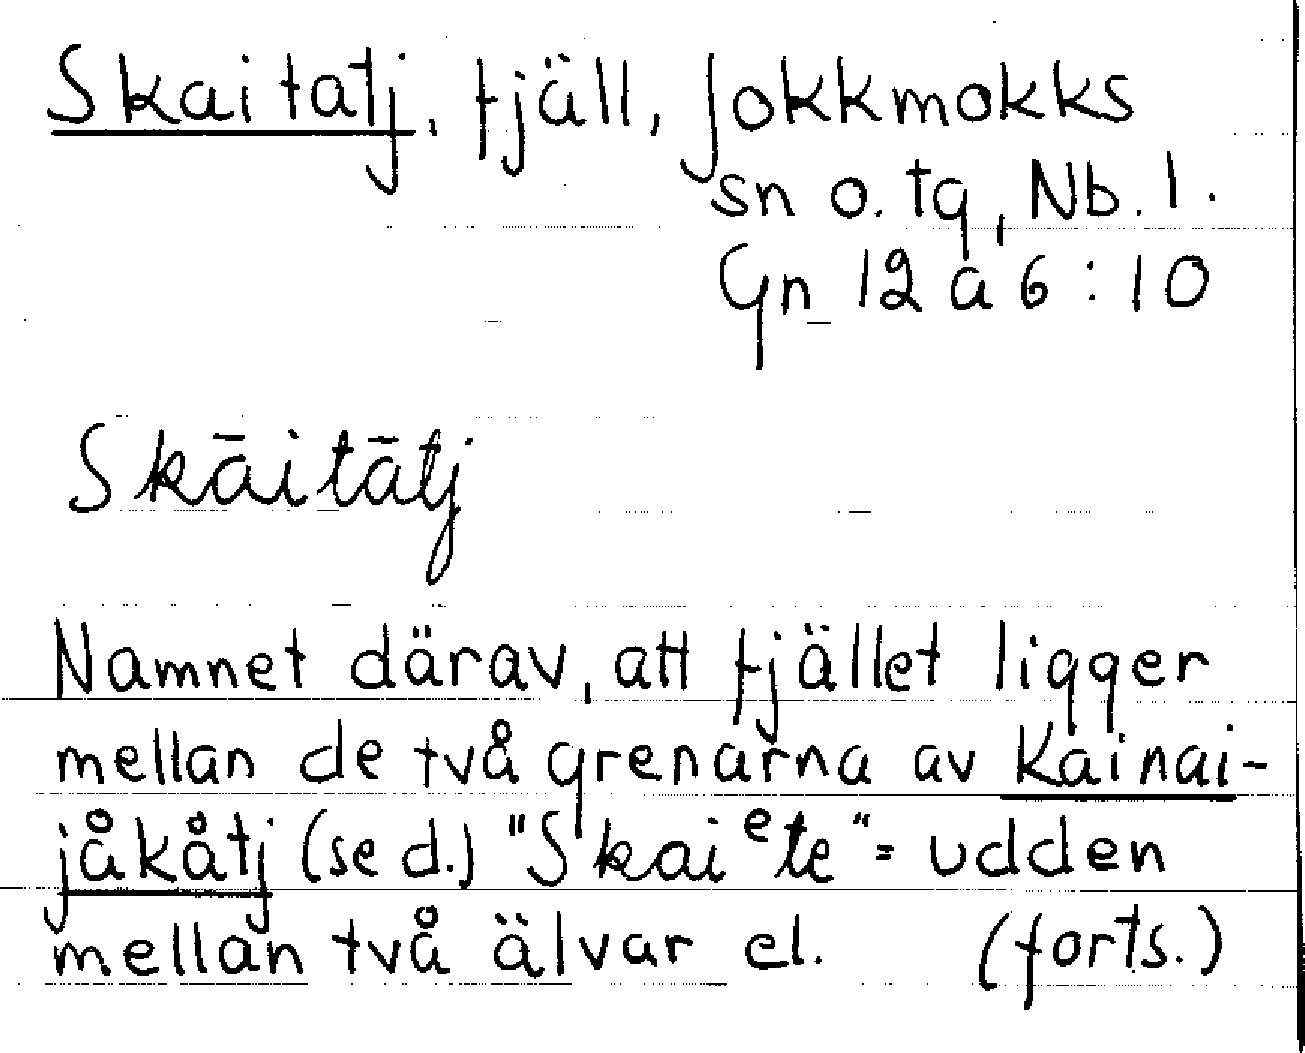 Skaitatj, fjäll, Jokkmokks
sn o. tg, Nb. l.
Gn 12 a 6 : 10
Skāitātj
Namnet därav, att fjället ligger
mellan de två grenarna av Kainai-
jåkåtj (se d.) "Skaiᵉte" = udden
mellan två älvar el. (forts.)